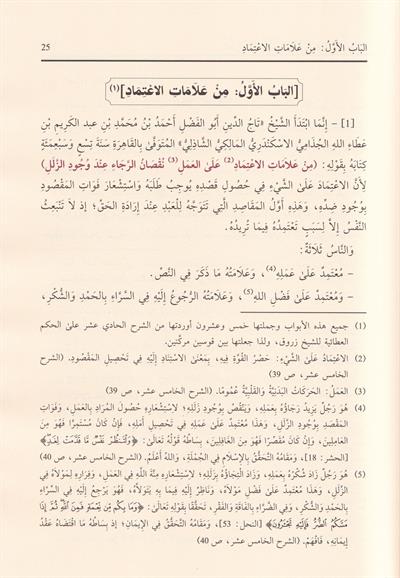 البَابُ الأَوَّلُ: مِنْ عَلَامَاتِ الاعْتِمَادِ 25
[البَابُ الأَوَّلُ: مِنْ عَلَامَاتِ الاعْتِمَادِ](1)
[1] - إِنَّمَا ابْتَدَأَ الشَّيْخُ «تَاجُ الدِّينِ أَبُو الفَضْلِ أَحْمَدُ بْنُ مُحَمَّدِ بْنِ عَبْدِ الكَرِيمِ بْنِ
عَطَاءِ اللهِ الجُذَامِيُّ الاسْكَنْدَرِيُّ المَالِكِيُّ الشَّاذِلِيُّ» المُتَوَفَّى بِالقَاهِرَةِ سَنَةَ تِسْعٍ وَسَبْعِمِئَةٍ
كِتَابَهُ بِقَوْلِهِ: (مِنْ عَلَامَاتِ الاعْتِمَادِ(2) عَلَى العَمَلِ(3) نُقْصَانُ الرَّجَاءِ عِنْدَ وُجُودِ الزَّلَلِ)
لِأَنَّ الاعْتِمَادَ عَلَى الشَّيْءِ فِي حُصُولِ قَصْدِهِ يُوجِبُ طَلَبَهُ وَاسْتِشْعَارَ فَوَاتِ المَقْصُودِ
بِوُجُودِ ضِدِّهِ، وَهَذِهِ أَوَّلُ المَقَاصِدِ الَّتِي تَتَوَجَّهُ لِلْعَبْدِ عِنْدَ إِرَادَةِ الحَقِّ؛ إِذْ لَا تَنْبَعِثُ
النَّفْسُ إِلَّا لِسَبَبٍ تَعْتَمِدُهُ فِيمَا تُرِيدُهُ.
وَالنَّاسُ ثَلَاثَةٌ:
- مُعْتَمِدٌ عَلَى عَمَلِهِ(4)، وَعَلَامَتُهُ مَا ذَكَرَ فِي النَّصِّ.
- وَمُعْتَمِدٌ عَلَى فَضْلِ اللهِ(5)، وَعَلَامَتُهُ الرُّجُوعُ إِلَيْهِ فِي السَّرَّاءِ بِالحَمْدِ وَالشُّكْرِ،
(1) جميع هذه الأبواب وجملتها خمس وعشرون أوردتها من الشرح الحادي عشر على الحكم
العطائية للشيخ زروق، ولذا جعلتها بين قوسين مركّنين.
(2) الاعْتِمَادُ عَلَى الشَّيْءِ: حَصْرُ القُوَّةِ فِيهِ، بِمَعْنَى الاسْتِنَادِ إِلَيْهِ فِي تَحْصِيلِ المَقْصُودِ. (الشرح
الخامس عشر، ص 39)
(3) العَمَلُ: الحَرَكَاتُ البَدَنِيَّةُ وَالقَلْبِيَّةُ عُمُومًا. (الشرح الخامس عشر، ص 39)
(4) هُوَ رَجُلٌ يَزِيدُ رَجَاؤُهُ بِعَمَلِهِ، وَيَنْقُصُ بِوُجُودِ زَلَلِهِ؛ لِاسْتِشْعَارِهِ حُصُولَ المُرَادِ بِالعَمَلِ، وَفَوَاتَ
المَقْصِدِ بِوُجُودِ الزَّلَلِ، وَهَذَا مُعْتَمِدٌ عَلَى عَمَلِهِ فِي تَحْصِيلِ أَمَلِهِ، فَإِنْ كَانَ مُسْتَمِرًّا فَهُوَ مِنَ
العَامِلِينَ، وَإِنْ كَانَ مُقَصِّرًا فَهُوَ مِنَ الغَافِلِينَ، بِسَاطُهُ قَوْلُهُ تَعَالَى: ﴿وَلْتَنظُرْ نَفْسٌ مَّا قَدَّمَتْ لِغَدٍ﴾
[الحشر: 18]، وَمَقَامُهُ التَّحَقُّقُ بِالإِسْلَامِ فِي الجُمْلَةِ، وَاللهُ أَعْلَمُ. (الشرح الخامس عشر، ص 40)
(5) هُوَ رَجُلٌ زَادَ شُكْرُهُ بِعَمَلِهِ، وَزَادَ الْتِجَاؤُهُ بِزَلَلِهِ؛ لِاسْتِشْعَارِهِ مِنَّةَ اللهِ فِي العَمَلِ، وَفِرَارِهِ لِمَوْلَاهُ فِي
الزَّلَلِ، وَهَذَا مُعْتَمِدٌ عَلَى فَضْلِ مَوْلَاهُ، وَنَاظِرٌ إِلَيْهِ فِيمَا بِهِ يَتَوَلَّاهُ، فَهُوَ يَرْجِعُ إِلَيْهِ فِي السَّرَّاءِ
بِالحَمْدِ وَالشُّكْرِ، وَفِي الضَّرَّاءِ بِالفَاقَةِ وَالفَقْرِ، تَحَقُّقًا بِقَوْلِهِ تَعَالَى: ﴿وَمَا بِكُم مِّن نِّعْمَةٍ فَمِنَ اللَّهِ ثُمَّ إِذَا
مَسَّكُمُ الضُّرُّ فَإِلَيْهِ تَجْأَرُونَ﴾ [النحل: 53]، وَمَقَامُهُ التَّحَقُّقُ فِي الإِيمَانِ؛ إِذْ بِسَاطُهُ مَا اقْتَضَاهُ عَقْدُ
إِيمَانِهِ، فَافْهَمْ. (الشرح الخامس عشر، ص 40)